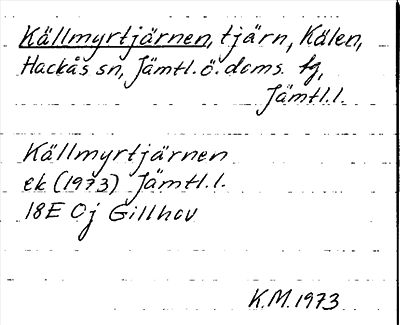 Källmyrtjärnen, tjärn, Kälen,
Hackås sn, Jämtl. ö. doms. tg,
Jämtl.l.
Källmyrtjärnen
ek (1973) Jämtl.l.
18E 0j Gillhov
K.M. 1973